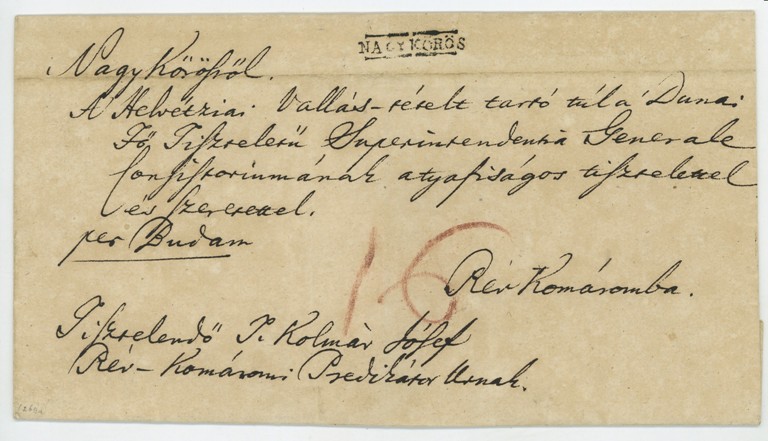 NAGY KÖRÖS
Nagy Körösről.
A' Helvétziai Vallás-tételt tartó túl a' Dunai
Fő Tiszteletü Superintendentia Generale
Consistoriumának atyafiságos tisztelettel
és szeretettel.
per Budam
16
Rév Komáromba.
Tisztelendő P. Kolmár Jósef
Rév-Komáromi Predikátor Urnak.